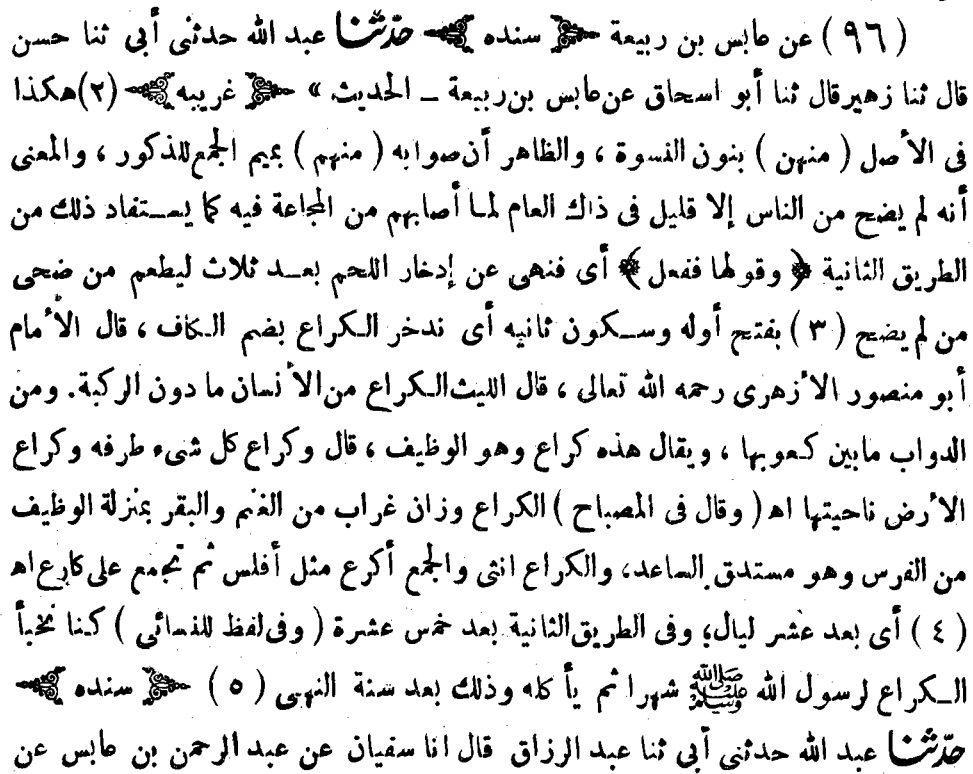 ( ٩٦ ) عن عابس بن ربيعة ﴿ سنده ﴾ حدّثنا عبد الله حدثنى أبى ثنا حسن
قال ثنا زهير قال ثنا أبو اسحاق عن عابس بن ربيعة ــ الحديث » ﴿ غريبه ﴾ (٢) هكذا
فى الأصل ( منهن ) بنون النسوة ، والظاهر أن صوابه ( منهم ) بميم الجمع للذكور ، والمعنى
أنه لم يضح من الناس إلا قليل فى ذاك العام لما أصابهم من المجاعة فيه كما يستفاد ذلك من
الطريق الثانية ﴿ وقولها ففعل ﴾ أى فنهى عن إدخار اللحم بعد ثلاث ليطعم من ضحى
من لم يضح ( ٣ ) بفتح أوله وسكون ثانيه أى ندخر الكراع بضم الكاف ، قال الأمام
أبو منصور الأزهرى رحمه الله تعالى ، قال الليث الكراع من الأنسان ما دون الركبة. ومن
الدواب مابين كعوبها ، ويقال هذه كراع وهو الوظيف ، قال وكراع كل شىء طرفه وكراع
الأرض ناحيتها اه ( وقال فى المصباح ) الكراع وزان غراب من الغنم والبقر بمنزلة الوظيف
من الفرس وهو مستدق الساعد، والكراع انثى والجمع أكرع مثل أفلس ثم تجمع على كارع اه
( ٤ ) أى بعد عشر ليال، وفى الطريق الثانية بعد خمس عشرة ( وفى لفظ للنسائى ) كنا نخبأ
الكراع لرسول الله ﷺ شهرا ثم يأكله وذلك بعد سنة النهى ( ٥ ) ﴿ سنده ﴾
حدّثنا عبد الله حدثنى أبى ثنا عبد الرزاق قال انا سفيان عن عبد الرحمن بن عابس عن